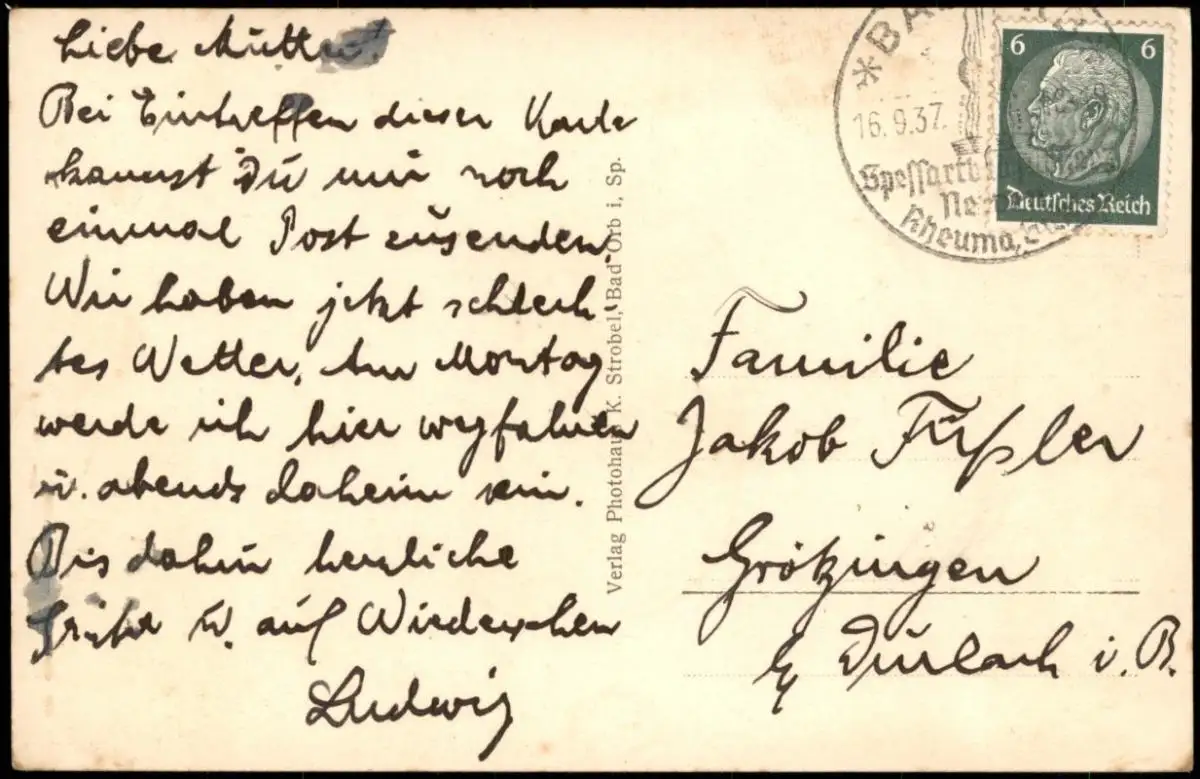 Liebe Mutter!
Bei Eintreffen dieser Karte
kannst Du mir noch
einmal Post zusenden.
Wir haben jetzt schlech
tes Wetter. Am Montag
werde ich hier wegfahren
u. abends daheim sein.
Bis dahin herzliche
Grüße u. auf Wiedersehen
Ludwig
Verlag Photohaus K. Strobel, Bad Orb i, Sp.
*BAD
16.9.37.
Spessart
Rheuma,
6 6
Deutsches Reich
Familie
Jakob Füßler
Grötzingen
b/ Durlach i. B.